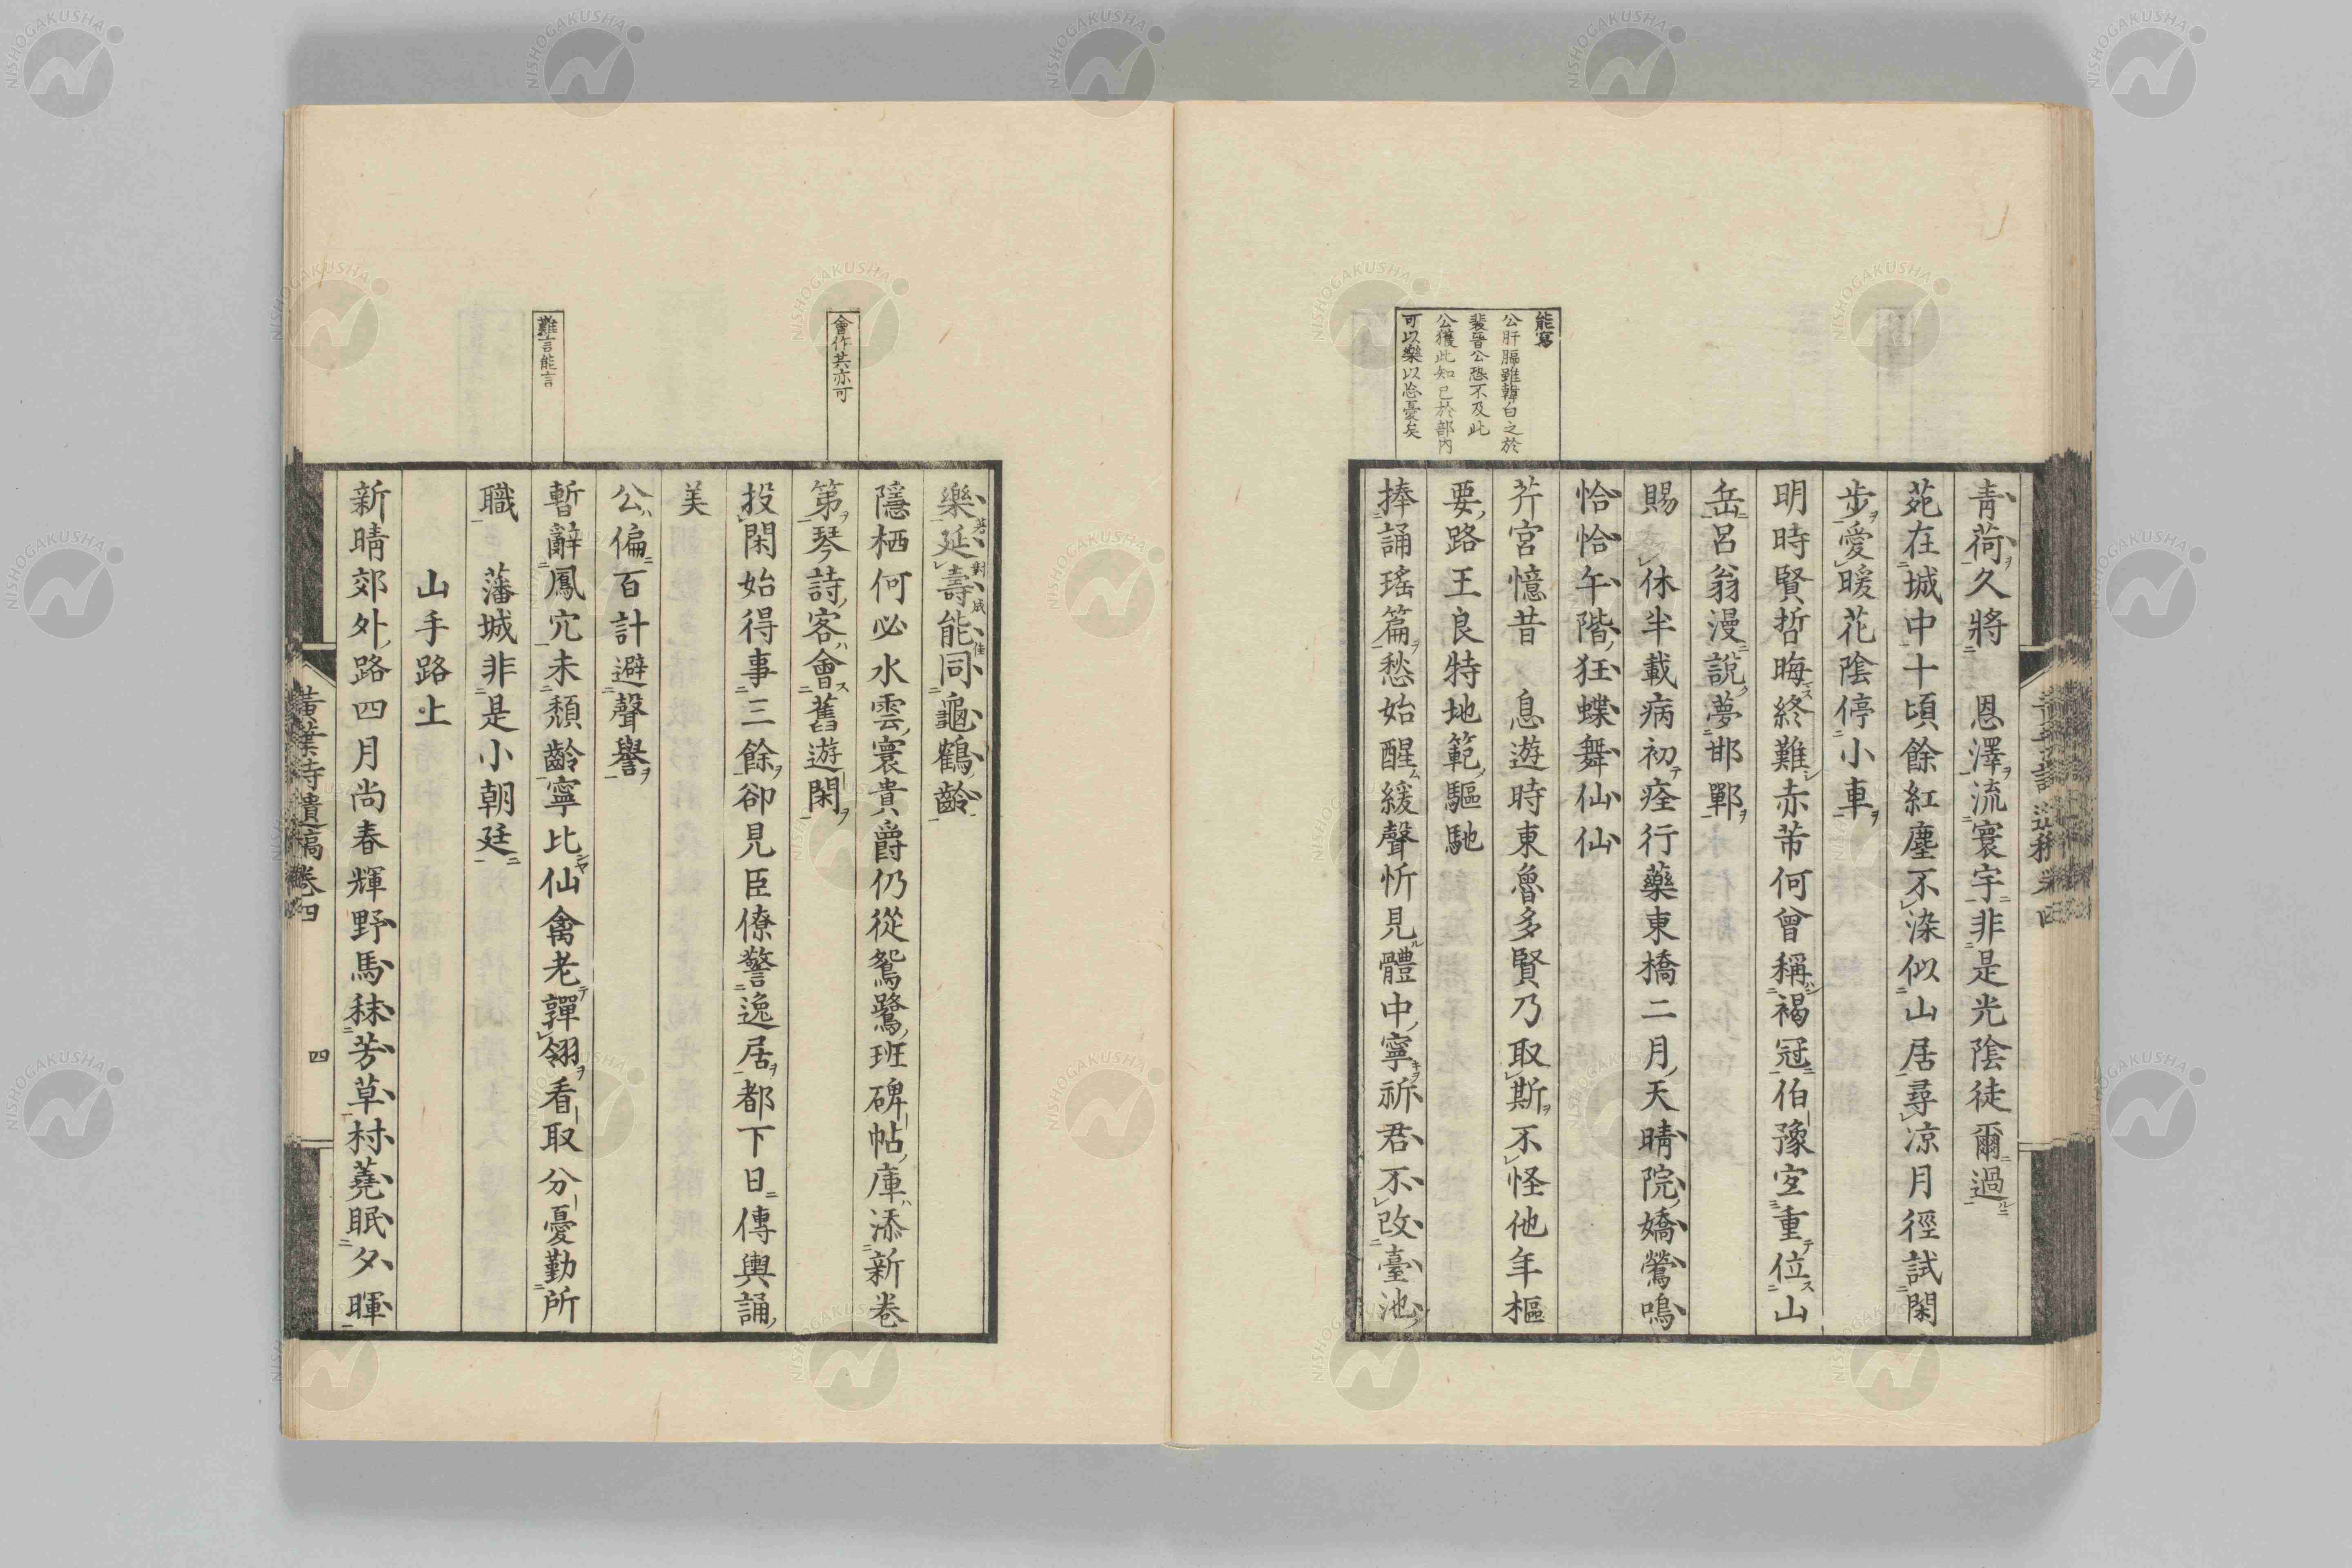 青荷久將　恩澤流寰宇非是光陰徒爾過
苑在城中十頃餘紅塵不染似山居尋凉月徑試閑
步愛暖花陰停小車
明時賢哲晦終難赤芾何曾稱褐冠伯豫宜重位山
岳呂翁漫說夢邯鄲
賜　休半載病初痊行藥東橋二月天晴院嬌鶯鳴
恰恰午階狂蝶舞仙仙
芥宮憶昔　息遊時東魯多賢乃取斯不怪他年樞
要路王良特地範驅馳
捧誦瑤篇愁始醒緩聲忻見體中寧祈君不改臺池
能寫
公肝膈雖韓白之於
裴晉公恐不及此
公獲此知己於部內
可以樂以忘憂矣
樂延壽能同龜鶴齡
隱栖何必水雲寰貴爵仍從鴛鷺班碑帖庫添新卷
第琴詩客會舊遊閑
投閑始得事三餘卻見臣僚警逸居都下日傳輿誦
美
公偏百計避聲譽
暫辭鳳穴未頹齡寧比仙禽老嚲翎看取分憂勤所
職　藩城非是小朝廷
山手路上
新晴郊外路四月尚春輝野馬秣芳草村蕘眠夕暉
會作共亦可
難言能言
黃葉夕陽村舍詩遺稿卷四
四
NISHOGAKUSHA